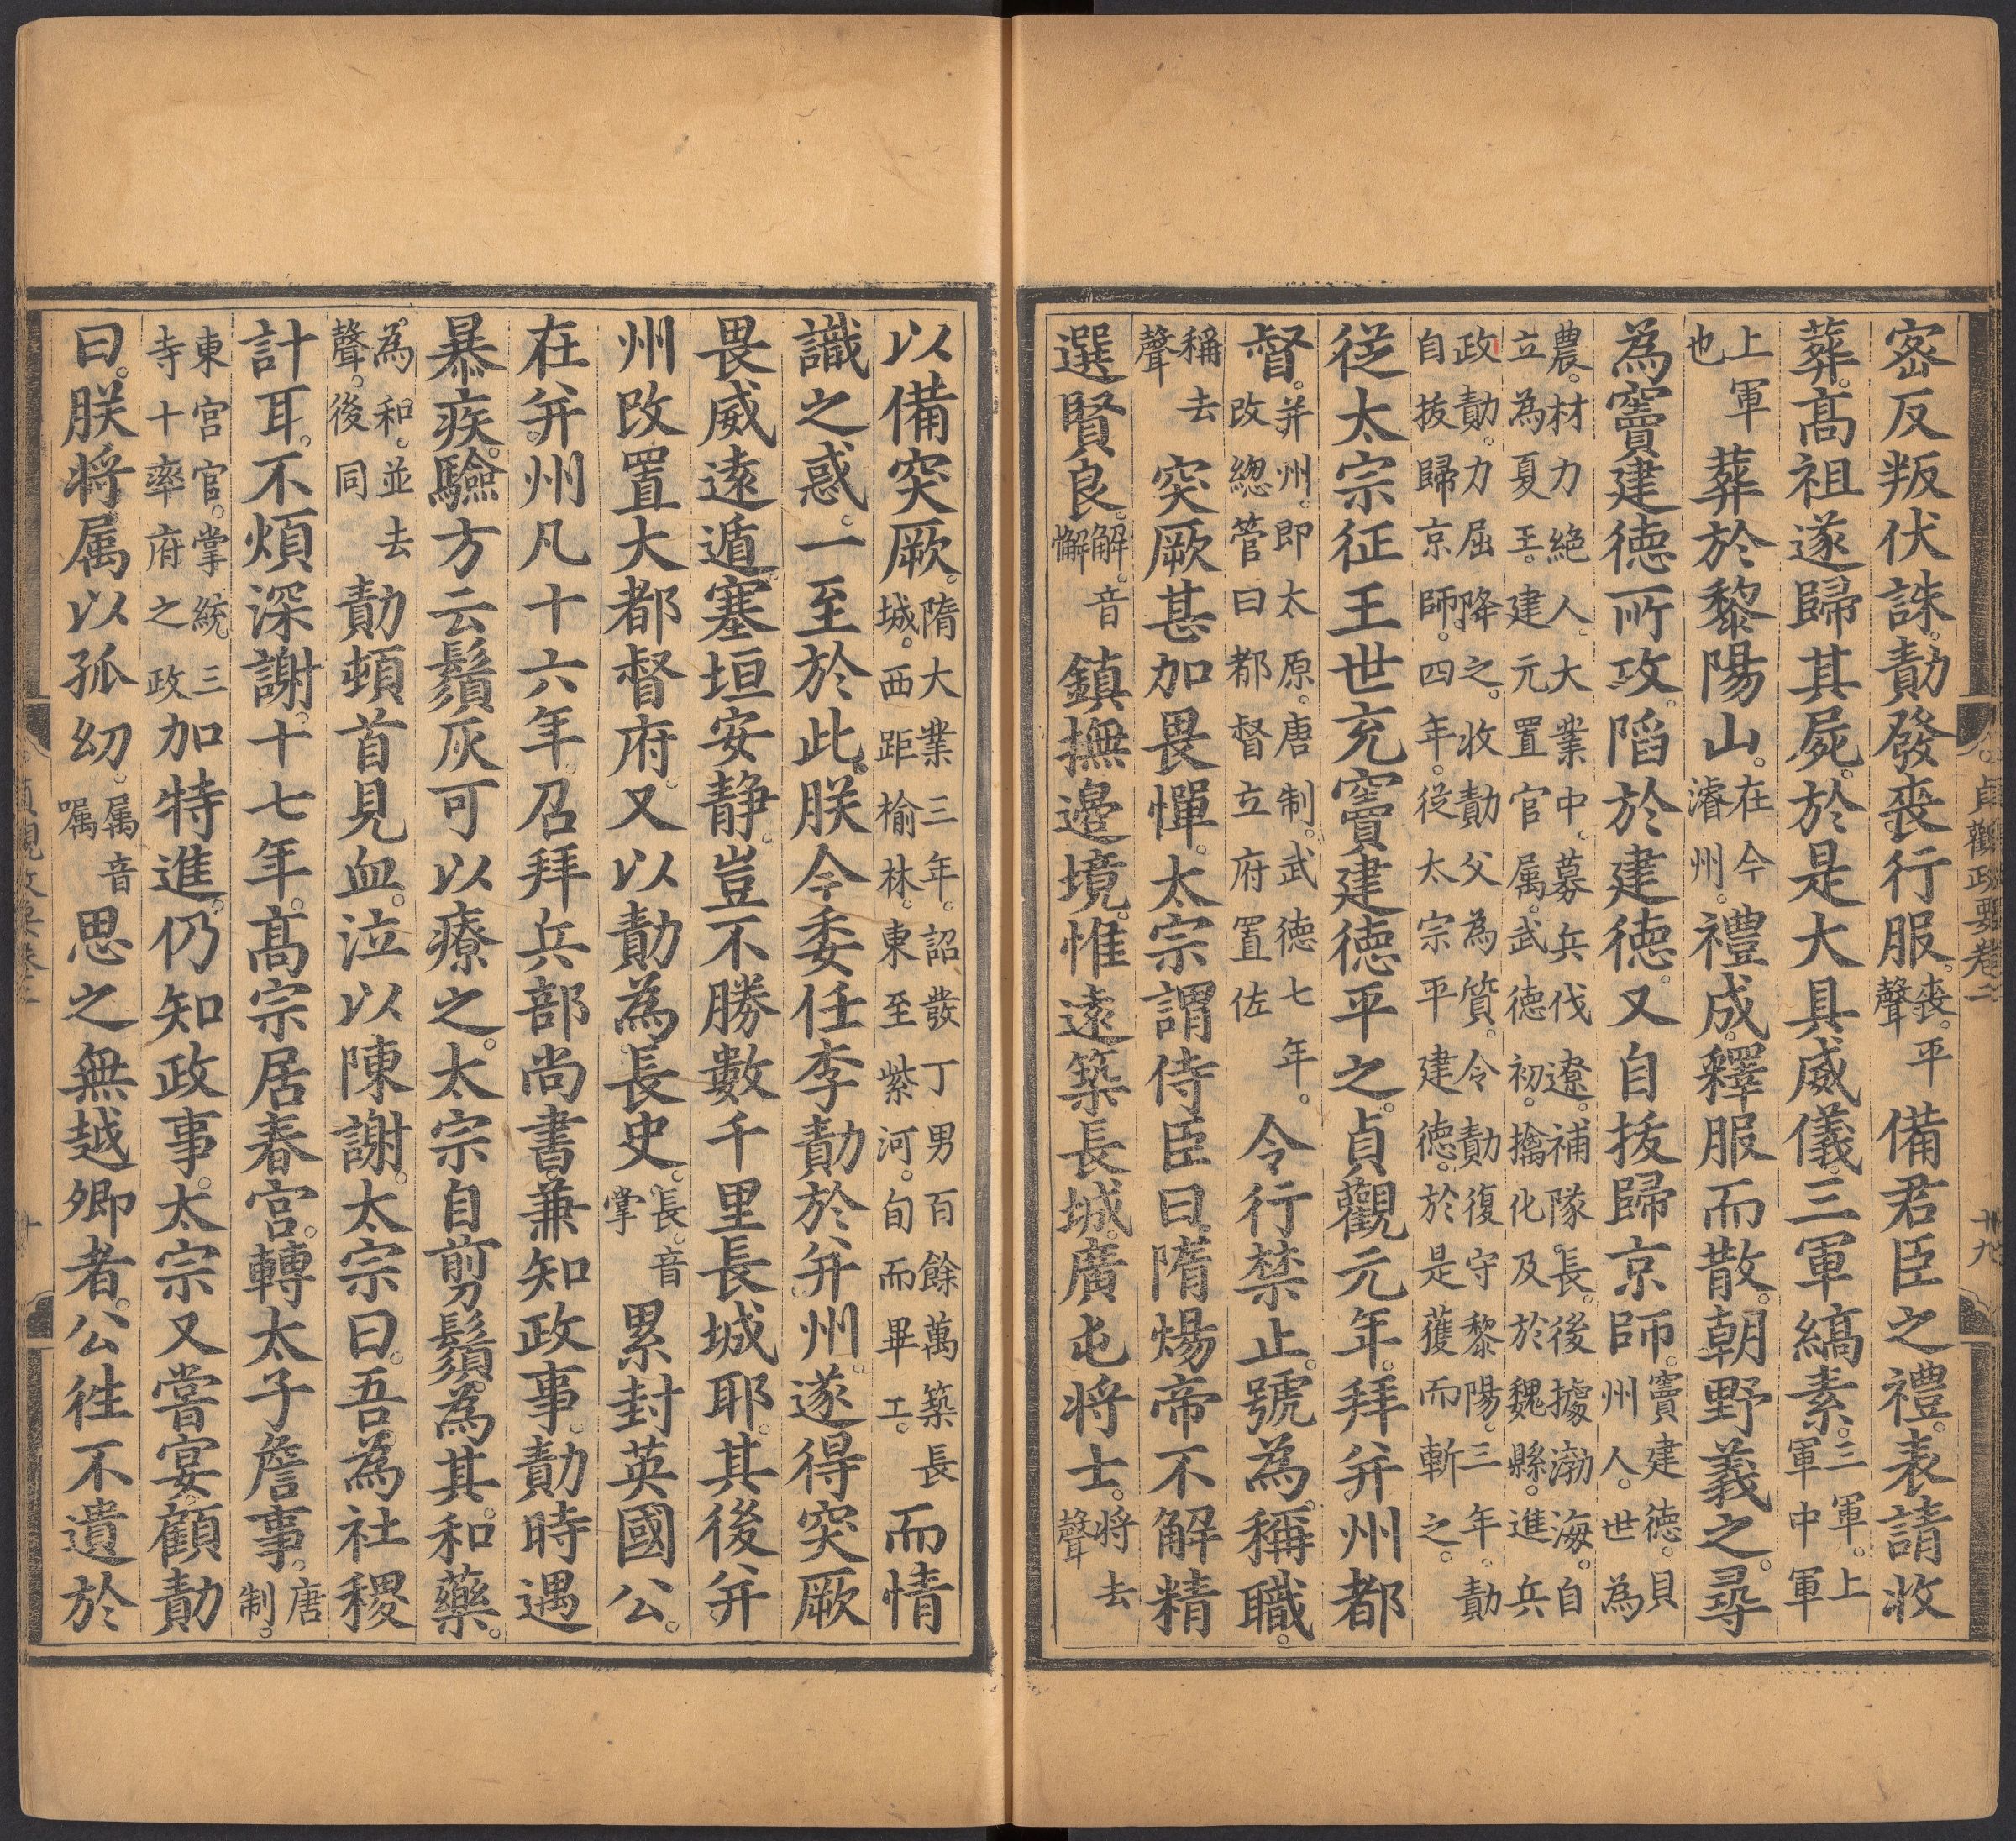 密反叛伏誅。勣發喪行服。喪。平聲備君臣之禮。表請收
葬。高祖遂歸其屍。於是大具威儀。三軍縞素。三軍。上軍中軍
上軍也葬於黎陽山。在今濬州。禮成。釋服而散。朝野義之。尋
為竇建德所攻。陷於建德。又自拔歸京師。竇建德。貝州人。世為
農。材力絕人。大業中。募兵伐遼。補隊長。後據渤海。自
立為夏王。建元置官属。武德初。擒化及於魏縣。進兵
攻勣。力屈降之。收勣父為質。令勣復守黎陽。三年。勣
自拔歸京師。四年。從太宗平建德。於是獲而斬之。
從太宗征王世充竇建德平之。貞觀元年。拜并州都
督。并州。即太原。唐制。武德七年。改總管曰都督立府置佐令行禁止。號為稱職。
稱去聲突厥甚加畏憚。太宗謂侍臣曰。隋煬帝不解精
選賢良。解。音懈鎮撫邊境。惟遠築長城。廣屯將士。將去聲
貞觀政要卷二
十九
以備突厥。隋大業三年。詔發丁男百餘萬築長城。西距榆林。東至紫河。旬而畢工。而情
識之惑。一至於此。朕今委任李勣於并州。遂得突厥
畏威遠遁。塞垣安靜。豈不勝數千里長城耶。其後并
州改置大都督府。又以勣為長史。長。音掌累封英國公。
在并州凡十六年。召拜兵部尚書。兼知政事。勣時遇
暴疾。驗方云鬚灰可以療之。太宗自剪鬚。為其和藥。
為。和。並去聲。後同勣頓首見血。泣以陳謝。太宗曰。吾為社稷
計耳。不煩深謝。十七年。高宗居春宮。轉太子詹事。唐制。
東宮官。掌統三寺十率府之政加特進。仍知政事。太宗又嘗宴。顧勣
曰。朕將属以孤幼。属音嘱思之無越卿者。公往不遺於